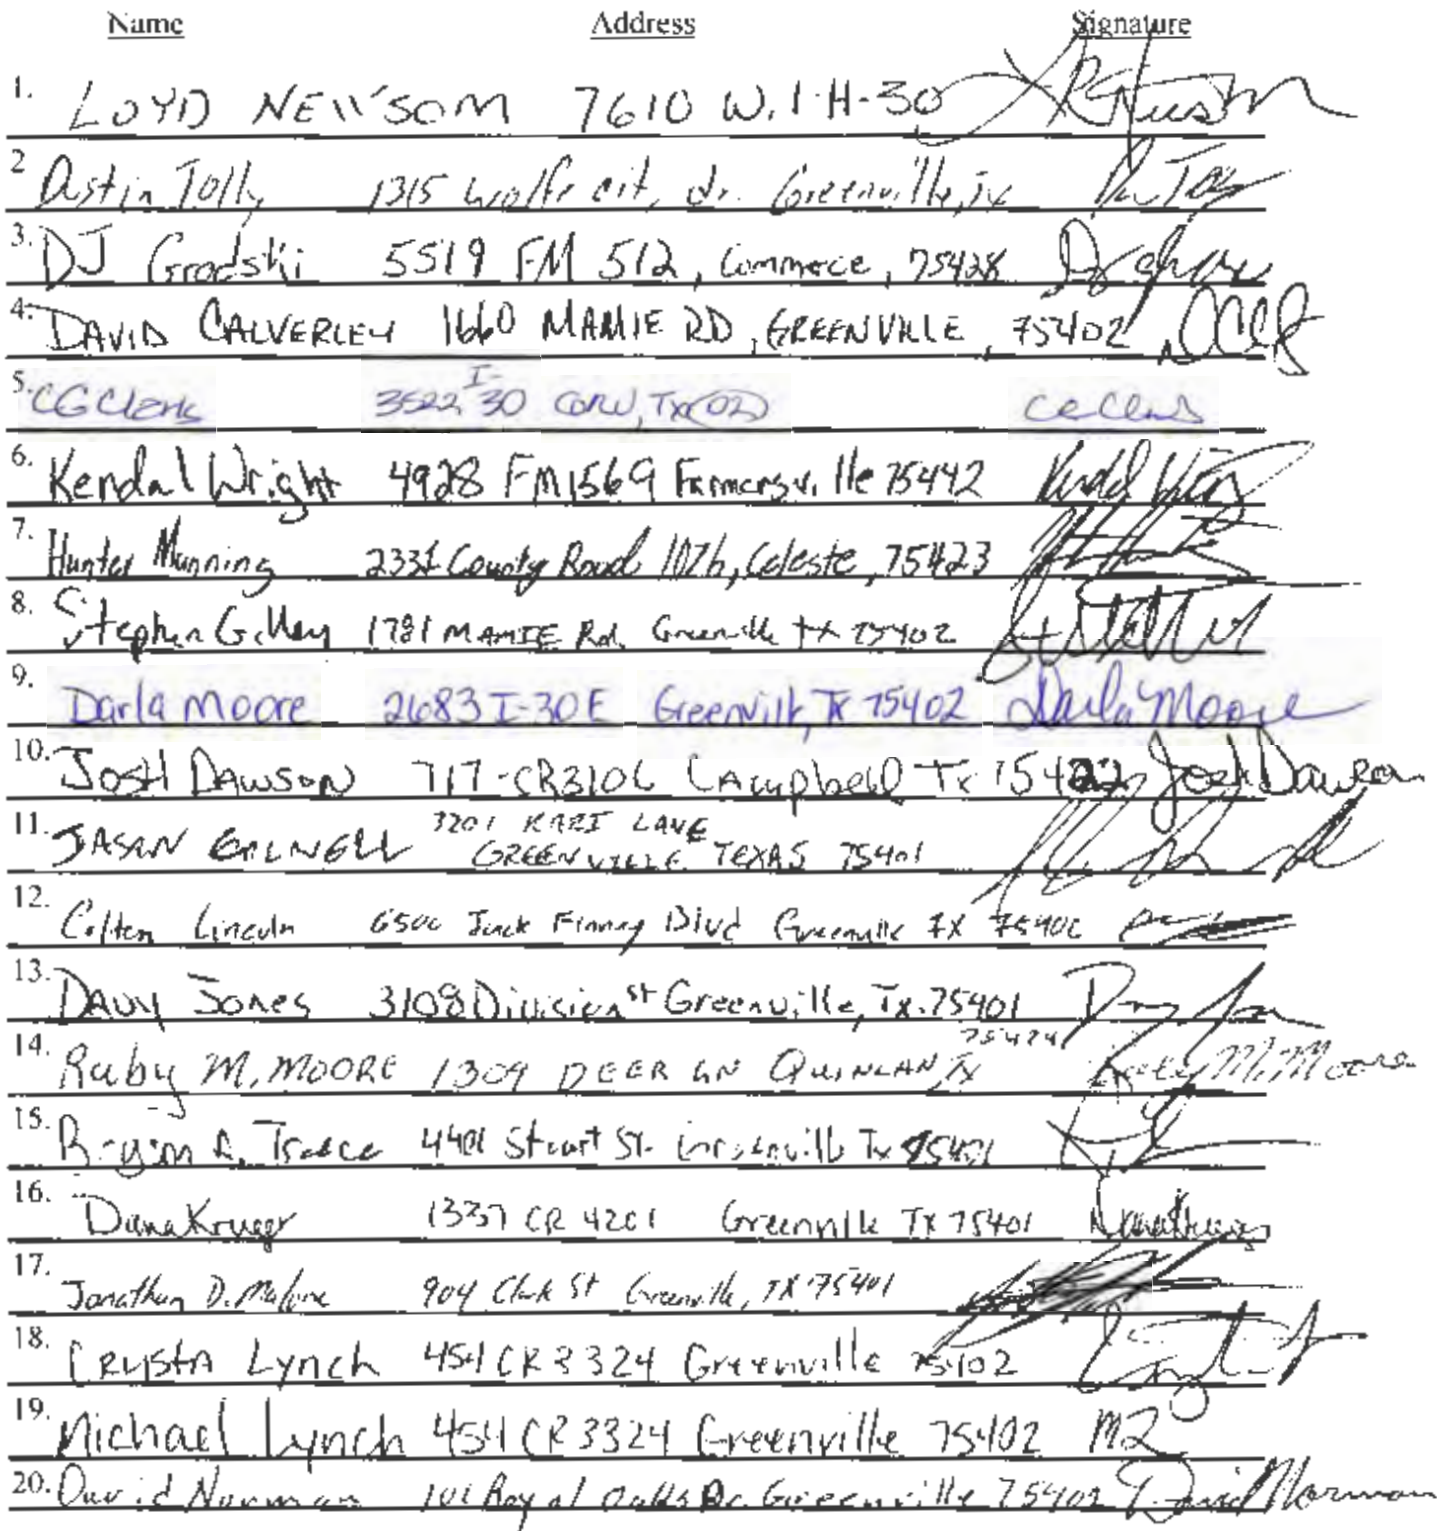 Name Address Signature
1. LOYD NEWSOM 7610 W. I-H-30
2 Dustin Jolly 1315 Wolfe city dr. Greenville, Tx
3. DJ Grodski 5519 FM 512, Commerce, 75428
4. DAVID CALVERLEY 1660 MAMIE RD, GREENVILLE, 75402
5. CG Clark 3522 I-30 Tx (02)
6. Kendal Wright 4928 FM 1569 Farmersville 75442
7. Hunter Manning 2331 County Road 1076, Celeste, 75423
8. Stephen Gilley 1781 MAMIE Rd. Greenville tx 75402
9. Darla Moore 2683 I-30 E Greenville, TX 75402 Darla Moore
10. JOSH DAWSON 717 CR3106 Campbell Tx 75422 Josh Dawson
11. JASON 3201 KARI LANE
GREENVILLE TEXAS 75401
12. Colten Lincoln 6500 Jack Finney Blvd Greenville TX 75402
13. Davy Jones 3108 Division St Greenville, Tx. 75401
14. Ruby M. MOORE 1309 DEER LN QUINLAN, TX 75474 Ruby M. Moore
15. 4401 Stuart St. Greenville Tx 75401
16. Dana Krueger 1337 CR 4201 Greenville TX 75401 Dana Krueger
17. Jonathan D. Malone 904 Clark St Greenville, TX 75401
18. Crysta Lynch 454 CR 3324 Greenville 75402
19. Michael Lynch 454 CR 3324 Greenville 75402
20. David Norman 101 Royal Oaks Dr. Greenville 75402 David Norman